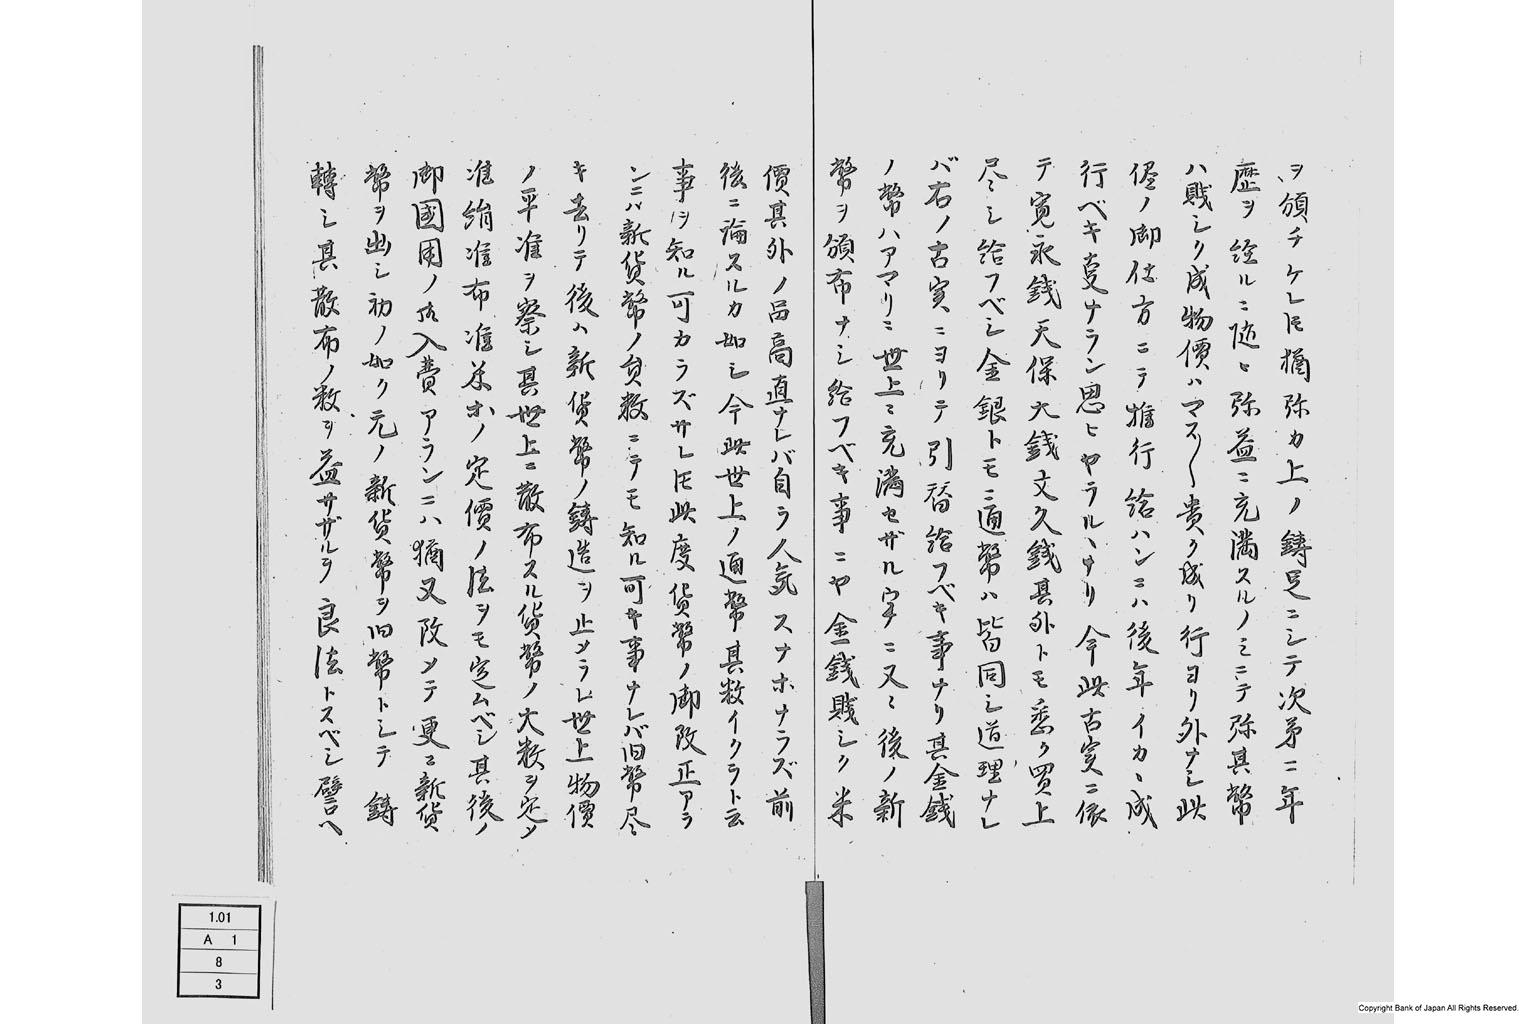 ヲ頒チケレ𪜈猶弥カ上ノ鋳足ニシテ次第ニ年
歴ヲ経ルニ随ヒ弥益ニ充満スルノミニテ弥其幣
ハ賎シク成物價ハマス〱貴ク成リ行ヨリ外ナシ此
侭ノ御仕方ニテ推行給ハンニハ後年イカヽ成
行ベキ憂ナラン思ヒヤラルヽナリ今此古実ニ依
テ寛永銭天保大銭文久銭其外トモ悉ク買上
尽シ給フベシ金銀トモニ通幣ハ皆同シ道理ナレ
バ右ノ古実ニヨリテ引替給フベキ事ナリ其金銭
ノ幣ハアマリニ世上ニ充満セザル字ニ又ニ後ノ新
幣ヲ頒布ナシ給フベキ事ニヤ金銭賎シク米
價其外ノ品高直ナレバ自ラ人気スナホナラズ前
後ニ論スルカ如シ今此世上ノ通幣其数イクラト云
事ヲ知ル可カラズサレ𪜈此度貨幣ノ御改正アラ
ンニハ新貨幣ノ員数ニテモ知ル可キ事ナレバ旧幣尽
キ去リテ後ハ新貨幣ノ鋳造ヲ止メラレ世上物價
ノ平准ヲ察シ其世上ニ散布スル貨幣ノ大数ヲ定メ
准絹准布准米ホノ定價ノ法ヲモ定ムベシ其後ノ
御國用ノ御入費アランニハ猶又改メテ更ニ新貨
幣ヲ出シ初ノ如ク元ノ新貨幣ヲ旧幣トシテ鋳
轉シ其散布ノ数ヲ益サザルヲ良法トスベシ譬ヘ
1.01
A 1
8
3
Copyright Bank of Japan All Rights Reserved.